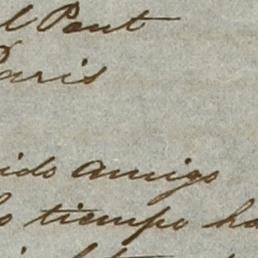 l Pont
Paris
ido Amigo
o tiempo ha